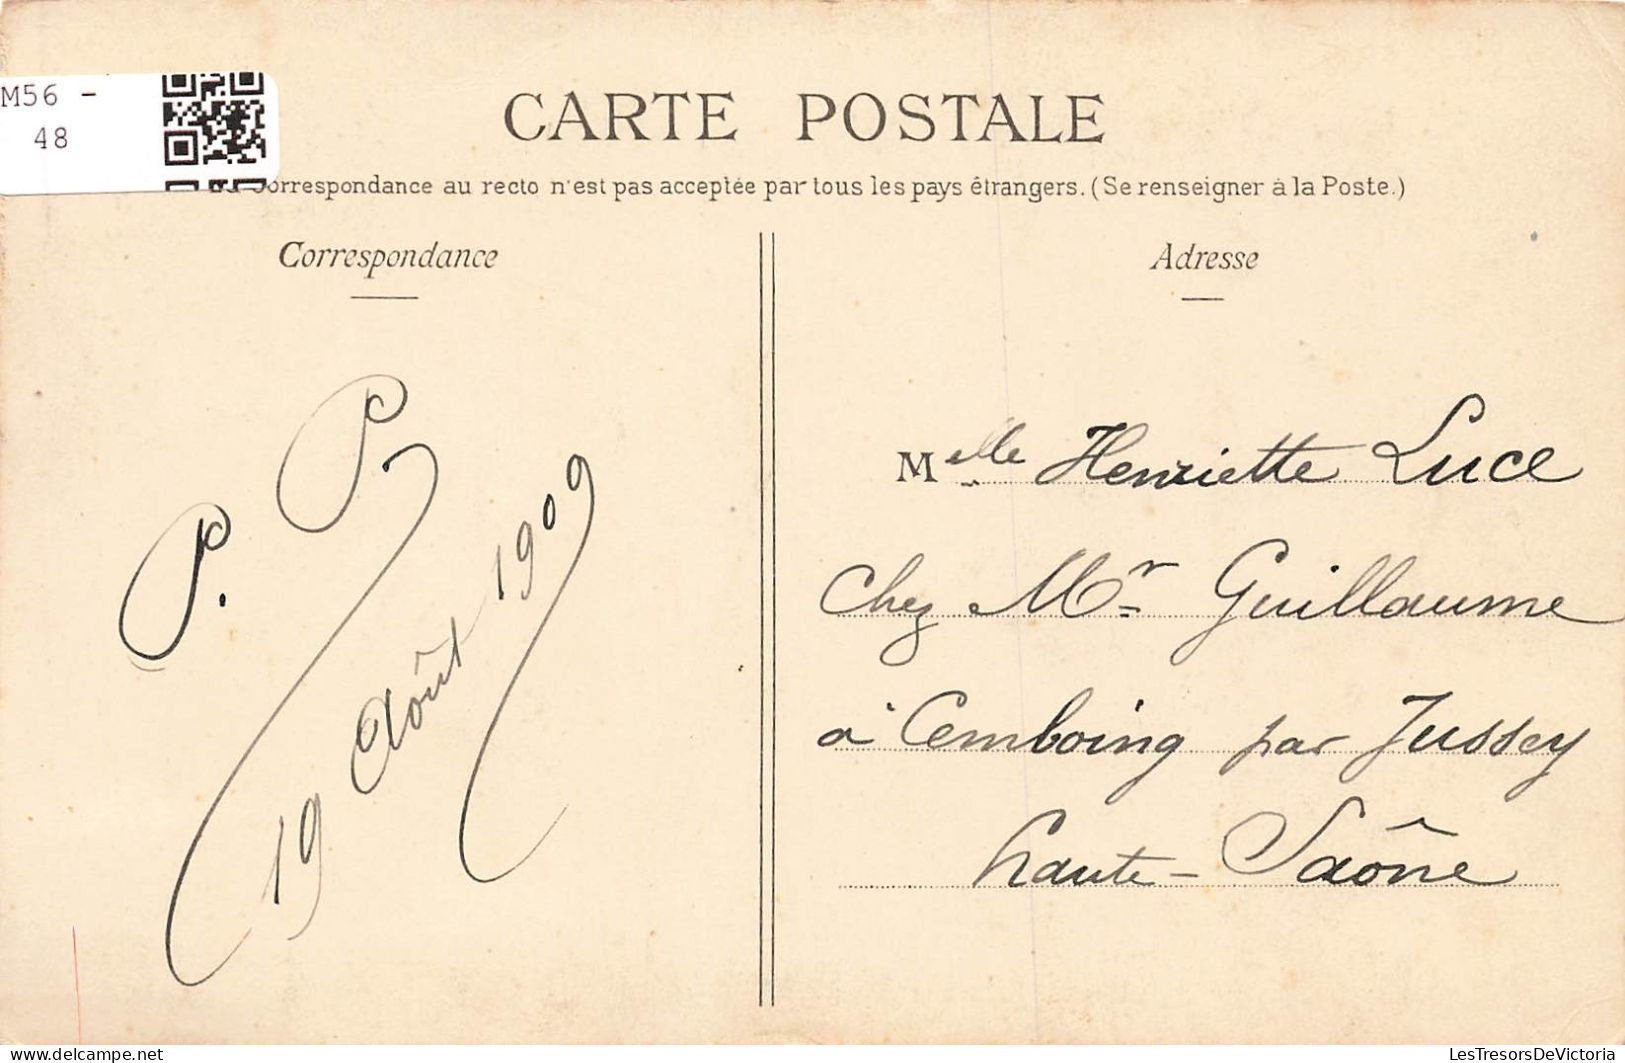 M56 -
48
CARTE POSTALE
correspondance au recto n'est pas acceptée par tous les pays étrangers. (Se renseigner à la Poste.)
Correspondance
P. P.
19 Août 1909
Adresse
Melle Henriette Luce
Chez Mr Guillaume
à Cemboing par Jussey
Haute-Saône
www.delcampe.net
LesTresorsDeVictoria